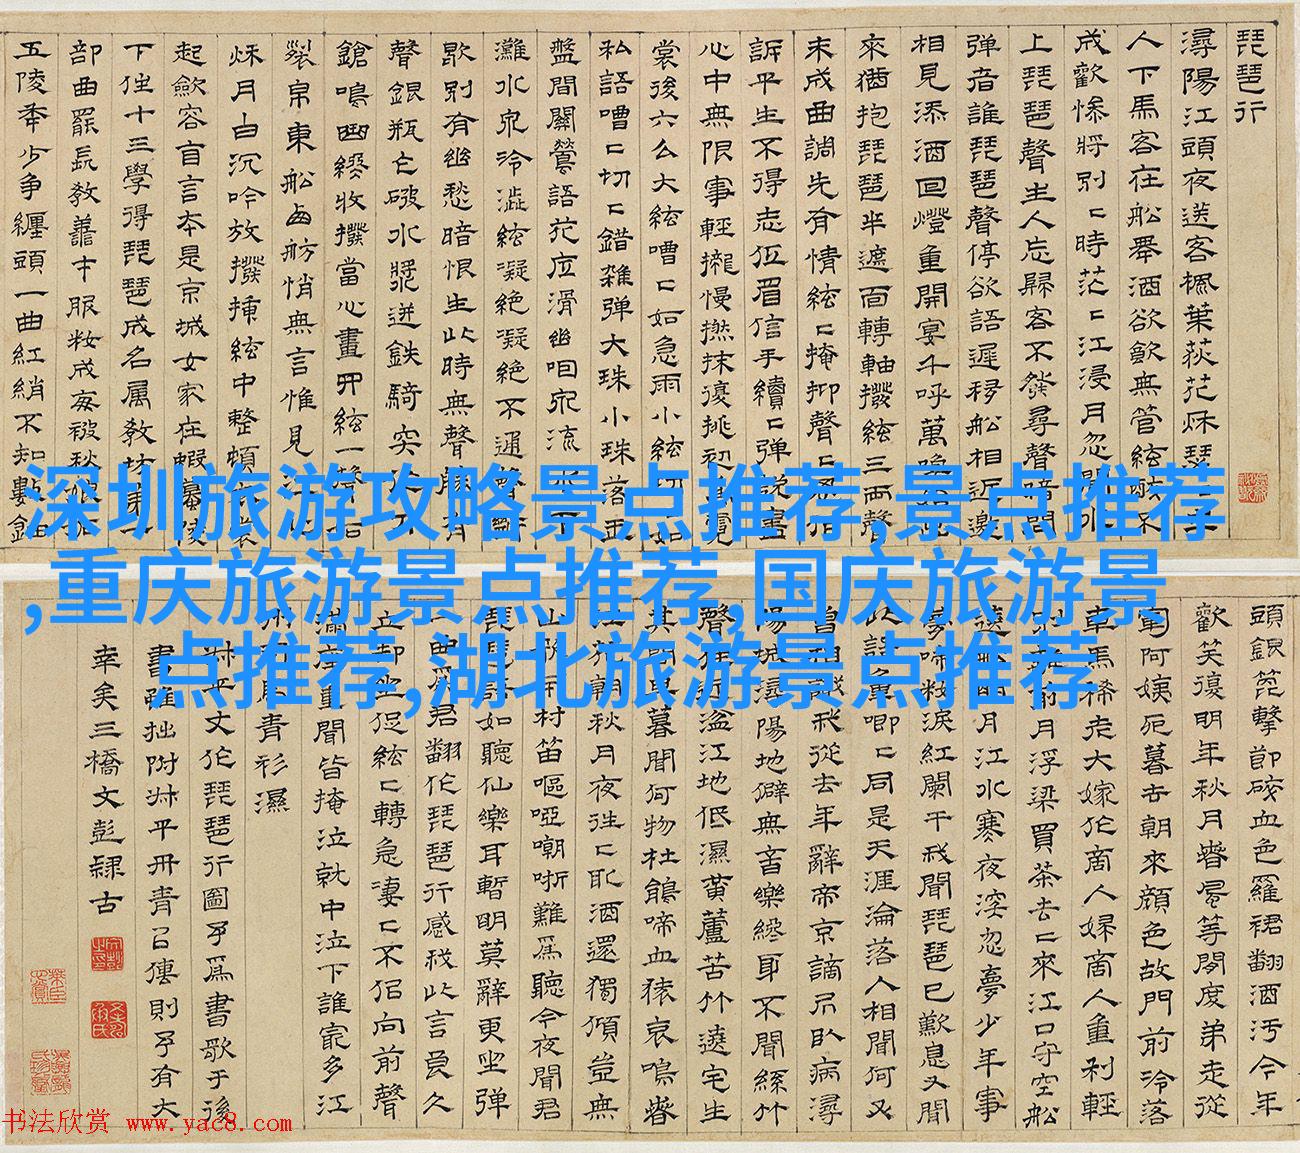 琵琶行
潯陽江頭夜送客楓葉荻花秋瑟
人下馬客在船舉酒欲飲無管絃醉不
成歡慘將別〻時茫〻江浸月忽聞水
上琵琶聲主人忘歸客不發尋聲暗問
彈者誰琵琶聲停欲語遲移船相近邀
相見添酒回燈重開宴千呼萬喚
來猶抱琵琶半遮面轉軸撥絃三兩聲
未成曲調先有情絃〻掩抑聲〻思似
訴平生不得志低眉信手續〻彈說盡
心中無限事輕攏慢撚抹復挑初為霓
裳後六么大絃嘈〻如急雨小絃切切如
私語嘈〻切〻錯雜彈大珠小珠落玉
盤間關鶯語花底滑幽咽泉流水下
灘水泉冷澀絃凝絕凝絕不通聲暫
歇別有幽愁暗恨生此時無聲勝有
聲銀瓶乍破水漿迸鐵騎突出刀
鎗鳴曲終收撥當心畫四絃一聲如
裂帛東船西舫悄無言惟見江心
秋月白沉吟放撥插絃中整頓衣裳
起斂容自言本是京城女家在蝦蟇陵
下住十三學得琵琶成名屬教坊第一
部曲罷長教善才服粧成每被秋娘妒
五陵年少爭纏頭一曲紅綃不知數鈿
深圳旅游攻略景点推荐,景点推荐
,重庆旅游景点推荐,国庆旅游景
点推荐,湖北旅游景点推荐
頭銀篦擊節碎血色羅裙翻酒污今年
歡笑復明年秋月春風等閒度弟走從
軍阿姨死暮去朝來顏色故門前冷落
車馬稀老大嫁作商人婦商人重利輕
別離前月浮梁買茶去〻來江口守空船
遶船明月江水寒夜深忽夢少年事
夢啼粧淚紅闌干我聞琵琶已歎息又聞
此語重唧〻同是天涯淪落人相聞何必
曾相識我從去年辭帝京謫居臥病潯
陽城潯陽地僻無音樂終歲不聞絲竹
聲住近湓江地低濕黃蘆苦竹遶宅生
其間旦暮聞何物杜鵑啼血猿哀鳴春
江花朝秋月夜往〻取酒還獨傾豈無
山歌與村笛嘔啞嘲哳難為聽今夜聞君
琵琶語如聽仙樂耳暫明莫辭更坐彈
一曲為君翻作琵琶行感我此言良久
立却坐促絃〻轉急淒〻不似向前聲
滿座重聞皆掩泣就中泣下誰最多江
州司馬青衫濕
叔平丈作琵琶行圖予為書歌于後
書雖拙附叔平丹青以傳則予有大
幸矣三橋文彭隸古
书法欣赏 www.yac8.com